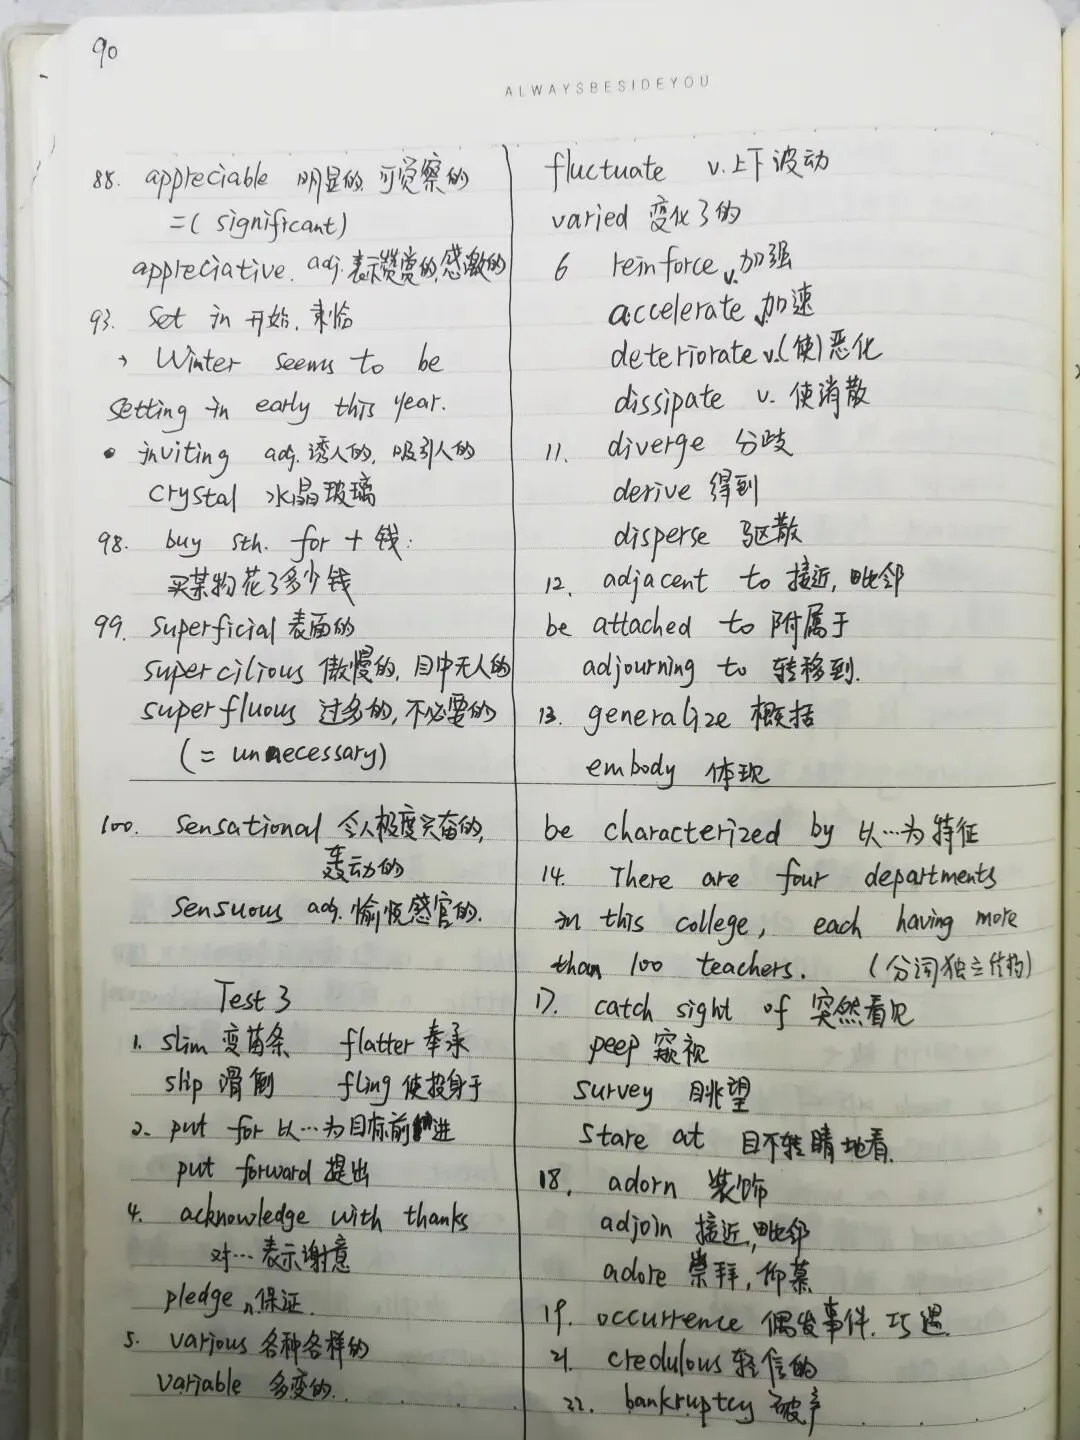 90
ALWAYSBESIDEYOU
88. appreciable 明显的, 可觉察的
=( significant)
appreciative. adj. 表示赞赏的,感激的
93. Set in 开始, 来临
Winter seems to be
setting in early this year.
• inviting adj. 诱人的, 吸引人的
crystal 水晶玻璃
98. buy sth. for + 钱:
买某物花了多少钱
99. superficial 表面的
supercilious 傲慢的, 目中无人的
superfluous 过多的, 不必要的
(= unnecessary)
100. sensational 令人极度兴奋的,
轰动的
sensuous adj. 愉悦感官的.
Test 3
1. slim 变苗条 flatter 奉承
slip 滑倒 fling 使投身于
2. put for 以…为目标前进
put forward 提出
4. acknowledge with thanks
对…表示谢意
pledge n.保证.
5. various 各种各样的
variable 多变的.
fluctuate v.上下波动
varied 变化了的
6 reinforce v.加强
accelerate v.加速
deteriorate v.(使)恶化
dissipate v. 使消散
11. diverge 分歧
derive 得到
disperse 驱散
12. adjacent to 接近, 毗邻
be attached to 附属于
adjourning to 转移到.
13. generalize 概括
embody 体现
be characterized by 以…为特征
14. There are four departments
in this college, each having more
than 100 teachers. (分词独立结构)
17. catch sight of 突然看见
peep 窥视
survey 眺望
stare at 目不转睛地看.
18. adorn 装饰
adjoin 接近,毗邻
adore 崇拜, 仰慕
19. occurrence 偶发事件. 巧遇
21. credulous 轻信的
22. bankruptcy 破产